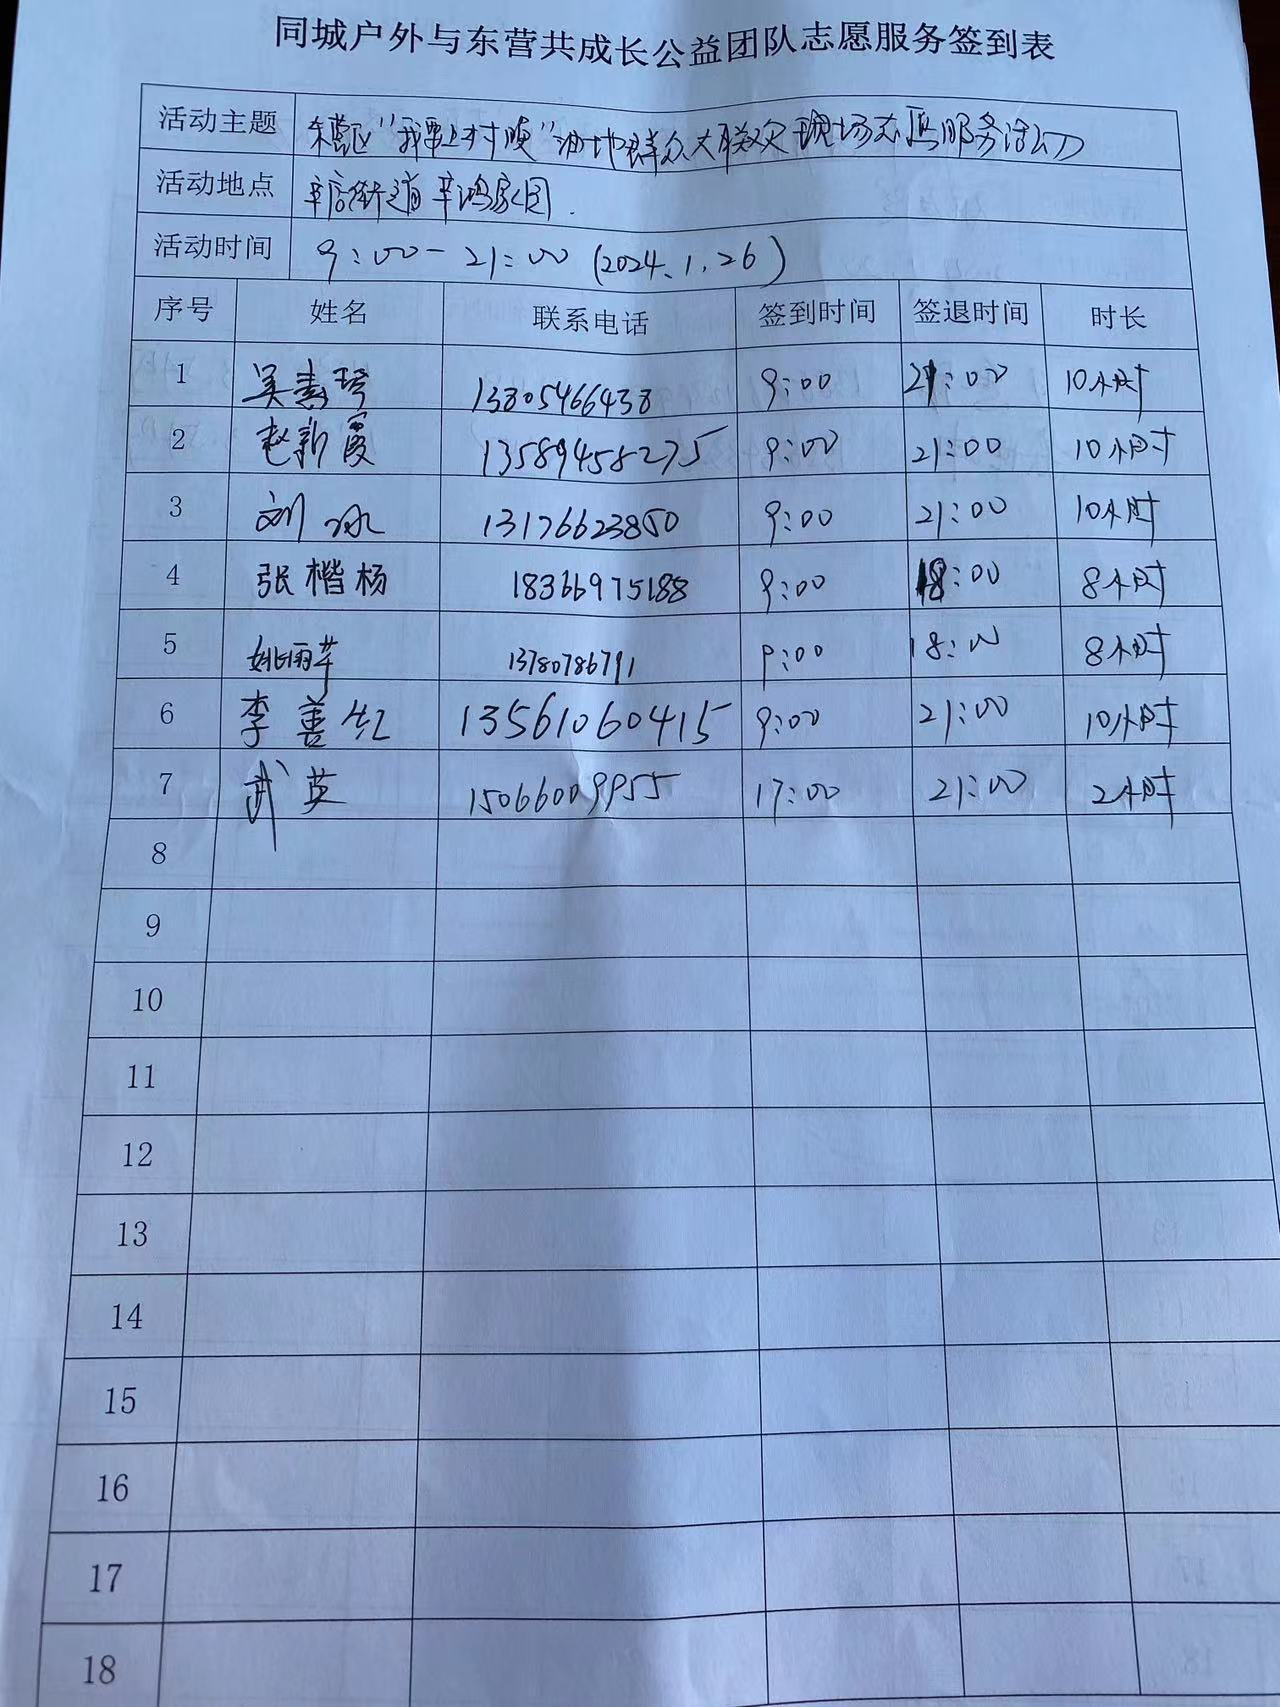 同城户外与东营共成长公益团队志愿服务签到表
活动主题 东营区"我要上村晚"油地群众大联欢现场志愿服务活动
活动地点 辛店街道辛鸿家园.
活动时间 9:00-21:00 (2024.1.26)
序号 姓名 联系电话 签到时间 签退时间 时长
1 吴寿琴 13805466438 9:00 21:00 10小时
2 赵新霞 13589458275 9:00 21:00 10小时
3 刘冰 13176623850 9:00 21:00 10小时
4 张楷杨 18366975188 9:00 18:00 8小时
5 姚丽苹 13780786791 9:00 18:00 8小时
6 李善红 13561060415 9:00 21:00 10小时
7 武英 15066009955 17:00 21:00 2小时
8
9
10
11
12
13
14
15
16
17
18